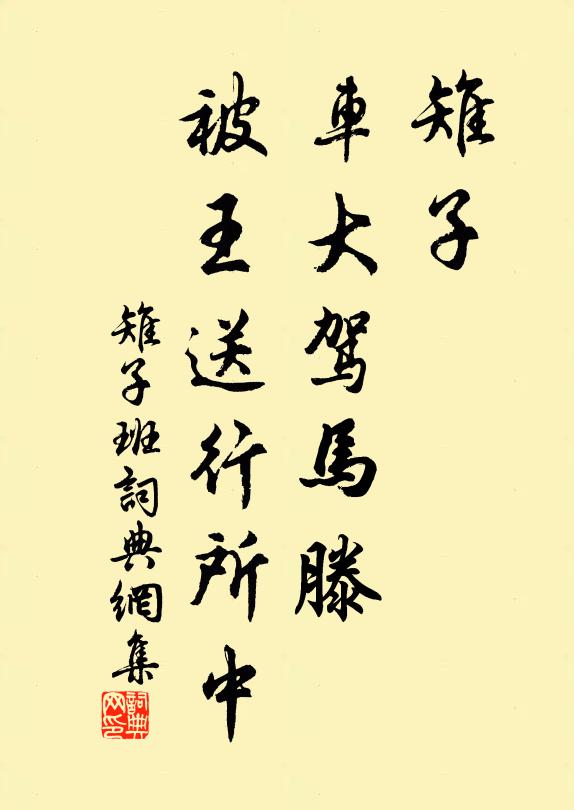 雉子
車大駕馬滕
被王送行所中
雉子班詞典網集
詞典网印